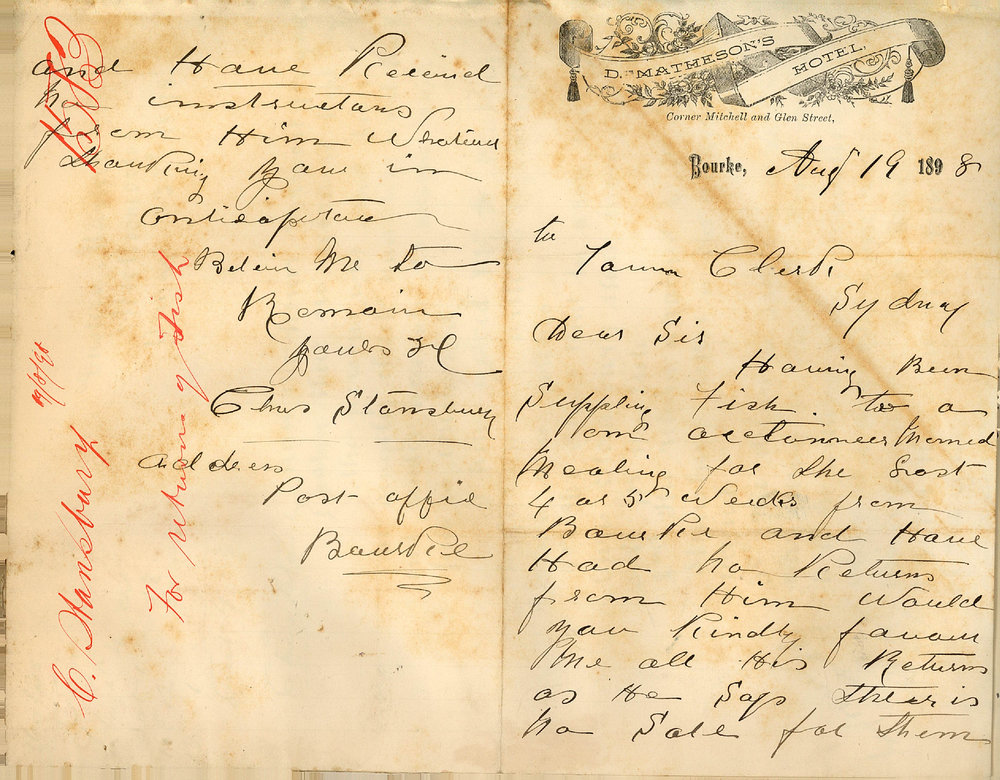 D. MATHESON'S HOTEL,
Corner Mitchell and Glen Street,
Bourke, Aug 19 1898
to
Town Clerk
Sydney
Dear Sir
Having Been
Suppling Fish to a
om auctonneer Named
Mealing for the Past
4 or 5 Weeks from
Bourke and Have
Had no Returns
from Him Would
you Kindly favour
Me all His Returns
as He Says thear is
no Sale for them
and Have Recived
no instructons
from Him Whatever
thanking you in
Anticapaton
Beleive Me to
Remain
yours &c
Chas Stansbury
Address
Post offic
Bourke
C. Stansbury 19/8/98
For return of Fish